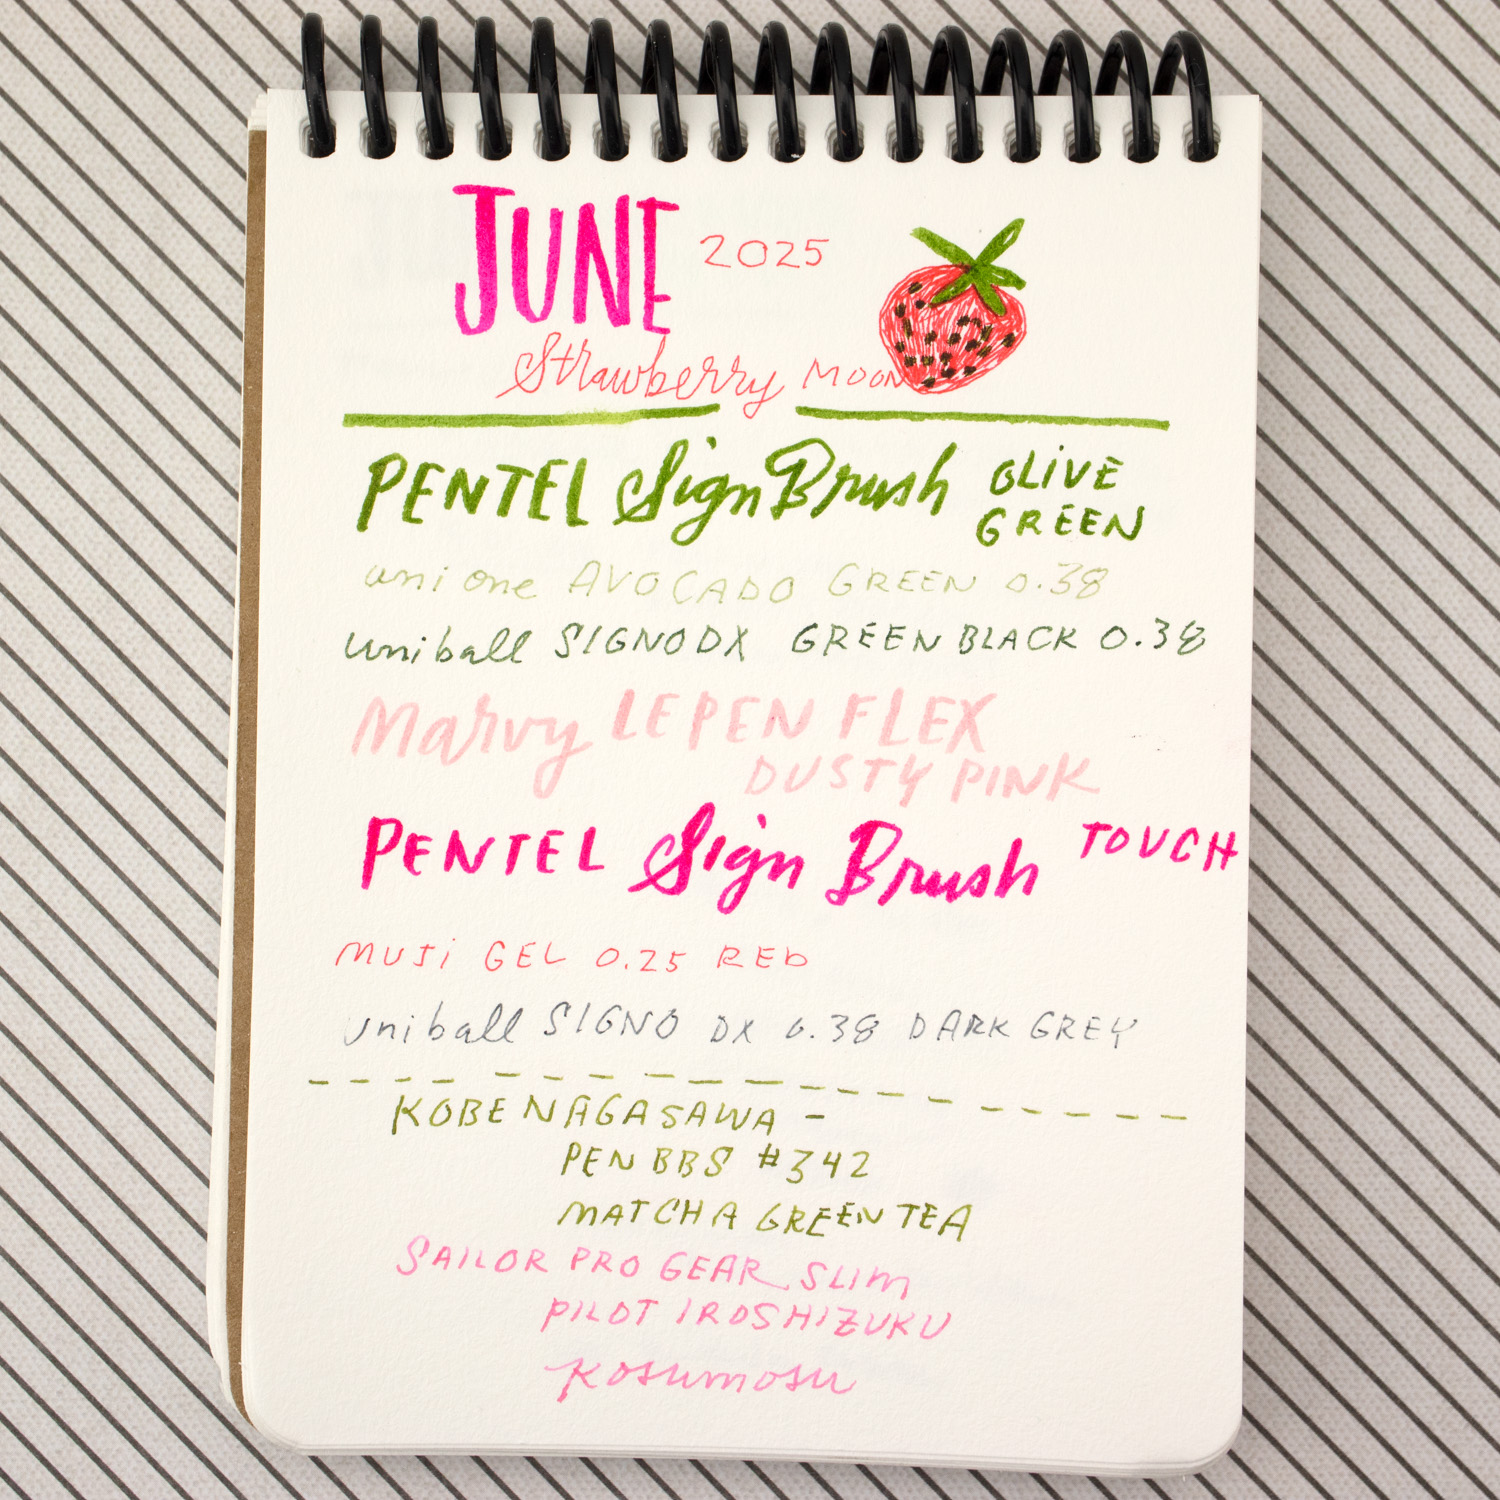 JUNE 2025
Strawberry MOON
PENTEL Sign Brush OLIVE
GREEN
uni one AVOCADO GREEN 0.38
uniball SIGNO DX GREEN BLACK 0.38
Marvy LE PEN FLEX
DUSTY PINK
PENTEL Sign Brush TOUCH
MUJI GEL 0.25 RED
uniball SIGNO DX 0.38 DARK GREY
KOBE NAGASAWA -
PEN BBS #342
MATCHA GREEN TEA
SAILOR PRO GEAR SLIM
PILOT IROSHIZUKU
Kosumosu